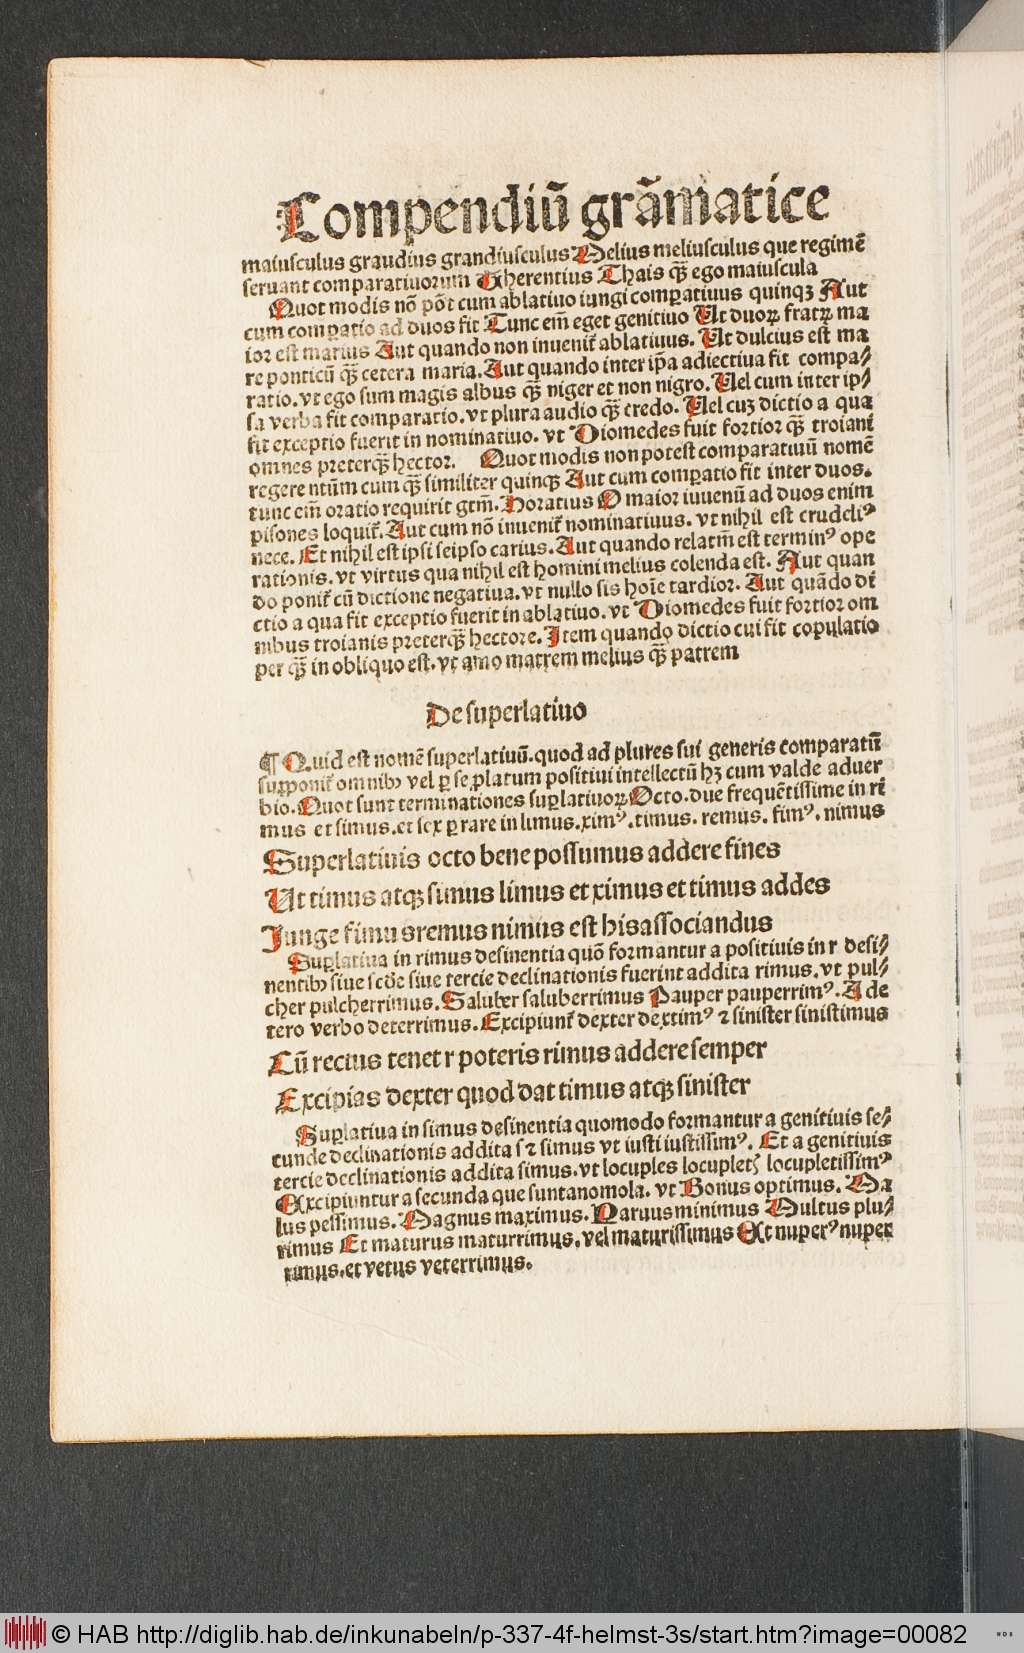 Compendiū grāmatice
maiusculus graudius grandiusculus Melius meliusculus que regimē
seruant comparatiuorum Therentius Thais qȝ̄ ego maiuscula
Quot modis nō pōt cum ablatiuo iungi comꝑatiuus quinqȝ Aut
cum comꝑatio ad duos fit Tunc em̄ eget genitiuo Ut duoꝝ fratꝝ ma
ior est marius Aut quando non inuenit᷑ ablatiuus. Ut dulcius est ma
re ponticū qȝ̄ cetera maria. Aut quando inter ip̄a adiectiua fit compa⸗
ratio. vt ego sum magis albus qȝ̄ niger et non nigro. Uel cum inter ip⸗
sa verba fit comparatio. vt plura audio qȝ̄ credo. Uel cuȝ dictio a qua
fit exceptio fuerit in nominatiuo. vt Diomedes fuit fortior qȝ̄ troiani
omnes preterqȝ̄ hector. Quot modis non potest comparatiuū nomē
regere ntūm cum qȝ̄ similiter quinqȝ Aut cum comꝑatio fit inter duos.
tunc em̄ oratio requirit gtm̄. Horatius O maior iuuenū ad duos enim
pisones loquit᷑. Aut cum nō inuenit᷑ nominatiuus. vt nihil est crudeliꝰ
nece. Et nihil est ipsi seipso carius. Aut quando relatm̄ est terminꝰ ope
rationis. vt virtus qua nihil est homini melius colenda est. Aut quan
do ponit᷑ cū dictione negatiua. vt nullo sis hoīe tardior. Aut quādo di
ctio a qua fit exceptio fuerit in ablatiuo. vt Diomedes fuit fortior om
nibus troianis preterqȝ̄ hectore. Item quando dictio cui fit copulatio
per qȝ̄ in obliquo est. vt amo matrem melius qȝ̄ patrem
De superlatiuo
¶ Quid est nomē superlatiuū. quod ad plures sui generis comparatū
suꝑponit᷑ omnibꝫ vel ꝑ se ꝓlatum positiui intellectū hȝ cum valde aduer
bio. Quot sunt terminationes suꝑlatiuoꝝ Octo. due frequētissime in ri
mus et simus. et sex ꝑ rare in limus. ximꝰ. timus. remus. fimꝰ. nimus
Superlatiuis octo bene possumus addere fines
Ut timus atqȝ simus limus et ximus et timus addes
Junge fimus remus nimus est his associandus
Suꝑlatiua in rimus desinentia quō formantur a positiuis in r desi⸗
nentibꝫ siue scd̄e siue tercie declinationis fuerint addita rimus. vt pul⸗
cher pulcherrimus. Saluber saluberrimus Pauper pauperrimꝰ. A de
tero verbo deterrimus. Excipiunt᷑ dexter dextimꝰ ⁊ sinister sinistimus
Cū rectus tenet r poteris rimus addere semper
Excipias dexter quod dat timus atqȝ sinister
Suꝑlatiua in simus desinentia quomodo formantur a genitiuis se⸗
cunde declinationis addita s ⁊ simus vt iusti iustissimꝰ. Et a genitiuis
tercie declinationis addita simus. vt locuples locupletꝭ locupletissimꝰ
Excipiuntur a secunda que sunt anomola. vt Bonus optimus. Ma
lus pessimus. Magnus maximus. Paruus minimus Multus plu⸗
rimus Et maturus maturrimus. vel maturissimus Et nuperꝰ nuper
rimus. et vetus veterrimus.
© HAB http://diglib.hab.de/inkunabeln/p-337-4f-helmst-3s/start.htm?image=00082